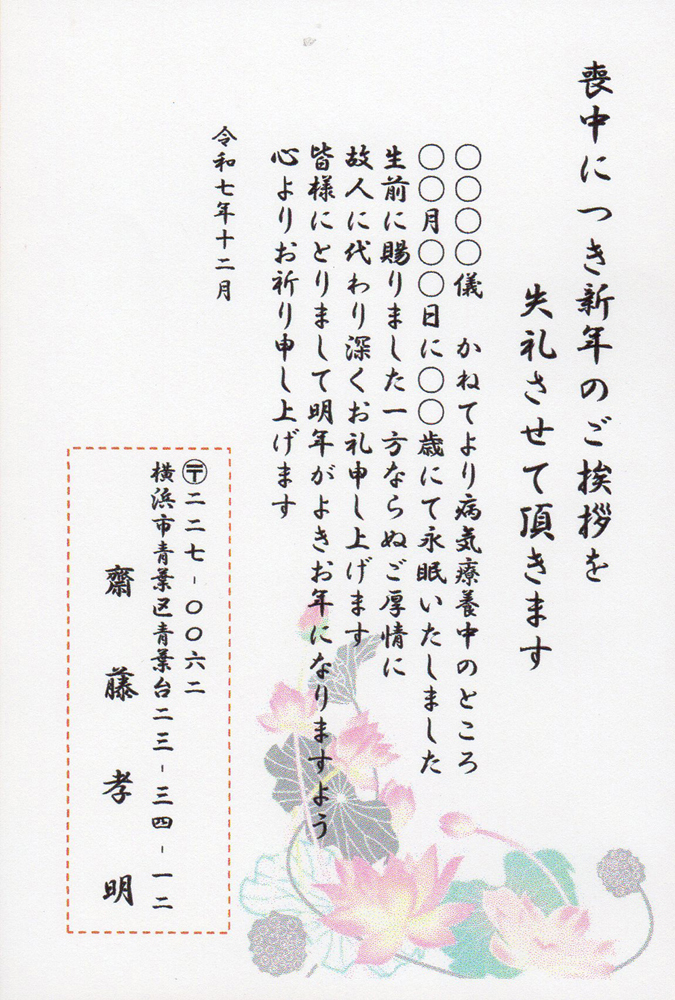 喪中につき新年のご挨拶を
失礼させて頂きます
○○○○儀　かねてより病気療養中のところ
○○月○○日に○○歳にて永眠いたしました
生前に賜りました一方ならぬご厚情に
故人に代わり深くお礼申し上げます
皆様にとりまして明年がよきお年になりますよう
心よりお祈り申し上げます
令和七年十二月
〒二二七-〇〇六二
横浜市青葉区青葉台二三-三四-一二
齋藤孝明